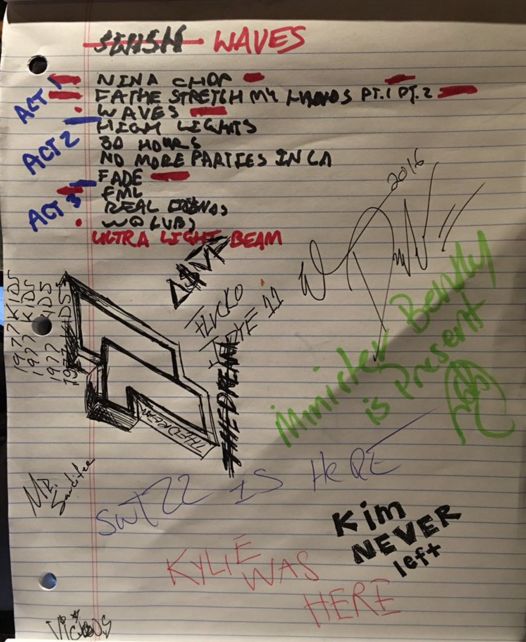 SWISH WAVES
ACT 1
NINA CHOP
FATHE STRETCH MY HANDS PT.1 PT.2
WAVES
ACT 2
HIGH LIGHTS
30 HOURS
NO MORE PARTIES IN LA
ACT 3
FADE
FML
REAL FRIENDS
WOLVES
ULTRA LIGHT BEAM
2016
A$AP
PLUCKO
1977 KIDS
1977 KIDS
1977 KIDS
THEDREAM
THEDREAM
Minister Bently
is Present
Mr.
SWIZZ IS HERE
Kim
NEVER
left
KYLIE
WAS
HERE